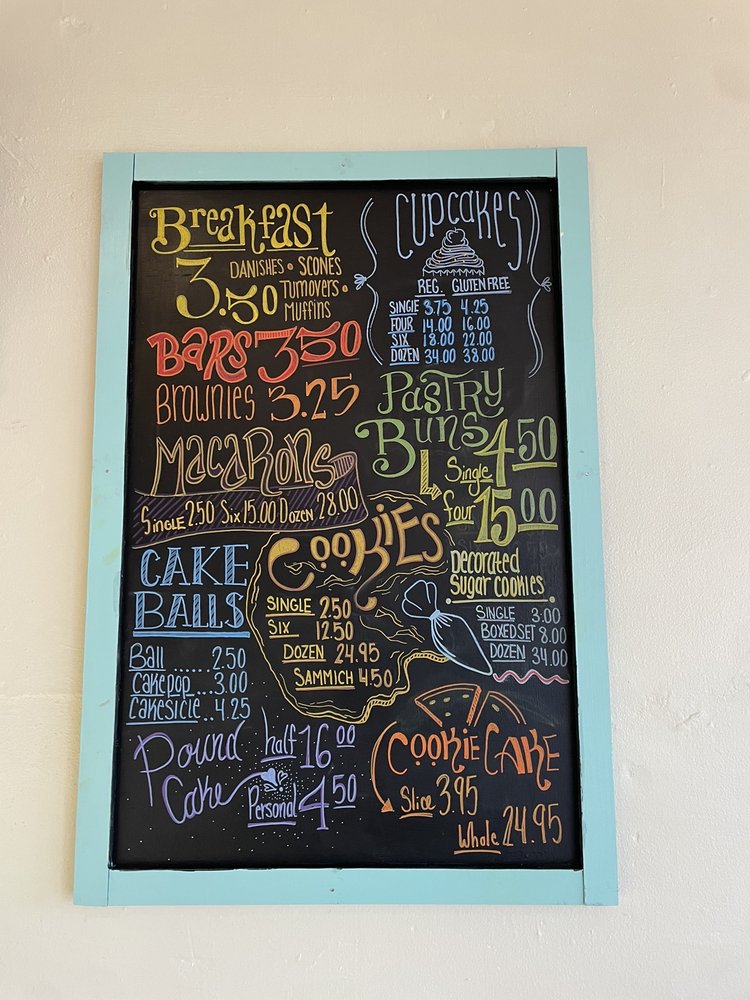 Breakfast
3.50
DANISHES • SCONES
Turnovers •
Muffins
BARS 350
Brownies 3.25
Macarons
Single 2.50 Six 15.00 Dozen 28.00
CAKE
BALLS
Ball ...... 2.50
Cakepop ... 3.00
Cakesicle .. 4.25
Pound
Cake
half 16 00
Personal 4 50
Cupcakes
REG. GLUTEN FREE
SINGLE 3.75 4.25
FOUR 14.00 16.00
SIX 18.00 22.00
DOZEN 34.00 38.00
PASTRY
Buns 4 50
Single
four 15 00
COOKIES
SINGLE 2.50
SIX 12.50
DOZEN 24.95
SAMMICH 4.50
Decorated
Sugar cookies
SINGLE 3.00
BOXED SET 8.00
DOZEN 34.00
COOKIE CAKE
Slice 3.95
Whole 24.95